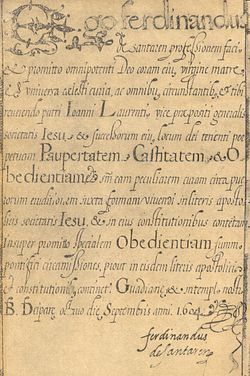 Ego ferdinandus
de santaren professionem facio,
& promitto omnipotenti Deo coram eius virgine matre
& universa caelesti curia, ac omnibus circunstantibus, & tibi
reverendo patri Ioanni Laurenti, vice praepositi generalis
societatis Iesu, & successorum eius, locum dei tenenti per
petuam Paupertatem, Castitatem, & O
bedientiam, & secundum eam peculiarem curam circa pue
rorum eruditionem, iuxta formam vivendi in literis aposto
licis societatis Iesu, & in eius constitutionibus contentam
insuper promitto specialem Obedientiam summo
pontifici circa missiones, prout in eisdem literis apostolicis
& constitutionibus continetur. Guadianae, & in templo nostro
B. Deiparae octavo die Septembris anni. 1604
ferdinandus
de santaren